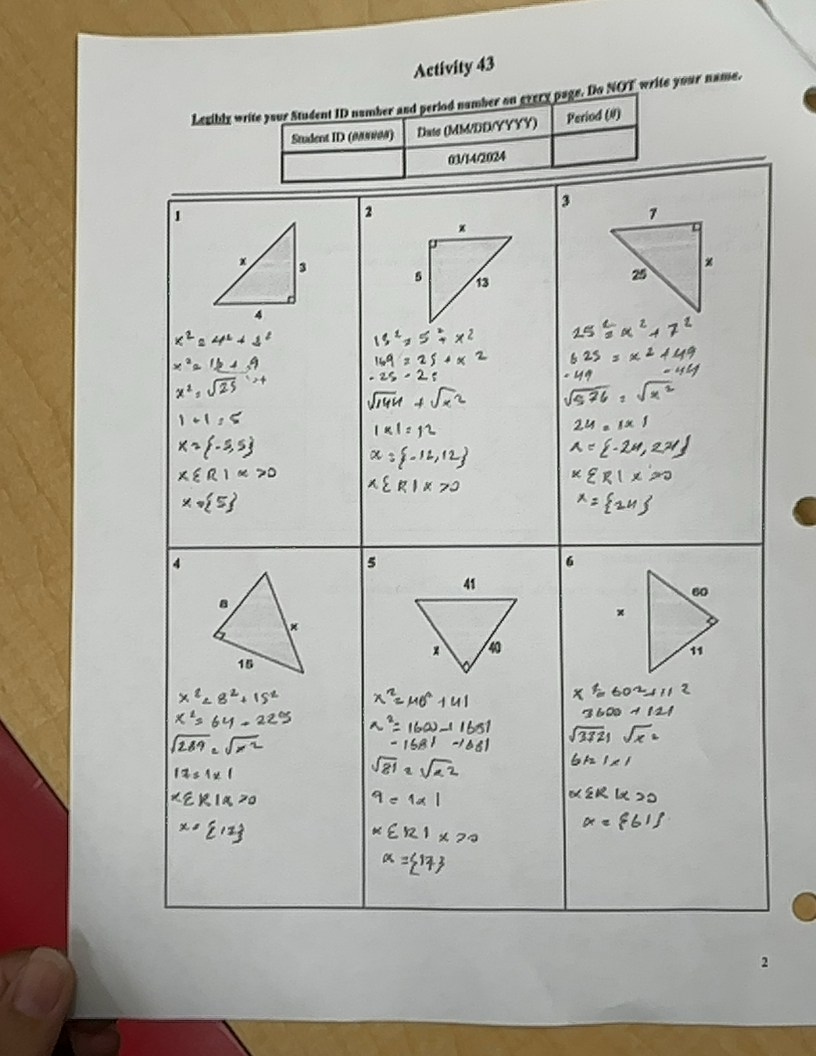 Activity 43
Legibly write your Student ID number and period number on every page. Do NOT write your name.
Student ID (######) Date (MM/DD/YYYY) Period (#)
03/14/2024
1
x
3
4
x² = 4² + 3²
x² = 16 + 9
x² = √25
x = {-5,5}
x ∈ R | x > 0
x = {5}
2
x
5
13
13² = 5² + x²
169 = 25 + x²
-25 -25
√144 + √x²
|x| = 12
x = {-12,12}
x ∈ R | x > 0
3
7
25
x
25² = x² + 7²
625 = x² + 49
-49
√576 = √x²
24 = |x|
x ∈ R | x > 0
x = {24}
4
8
x
15
x² = 8² + 15²
x² = 64 + 225
√289 = √x²
17 = |x|
x ∈ R | x > 0
x = {17}
5
41
x
40
x² = 40² + 41
x² = 1600 + 1681
-1681 -1681
√81 = √x²
9 = |x|
x ∈ R | x > 0
x = {17}
6
60
x
11
x² = 60² + 11²
3600 + 121
√3721 √x²
x ∈ R | x > 0
x = {61}
2